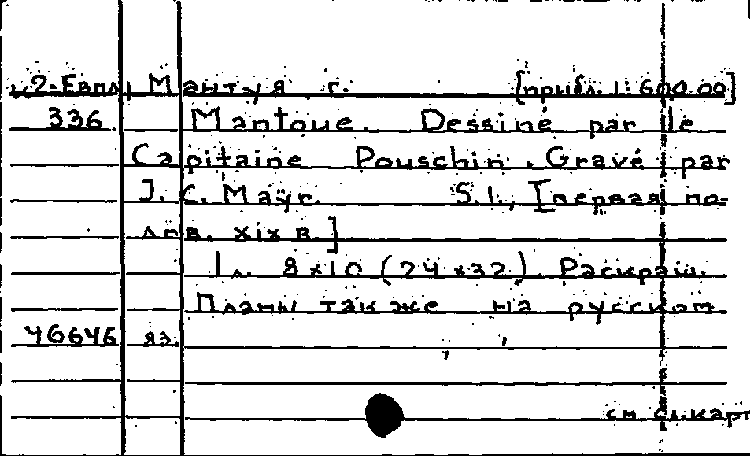 к2-Евпл Мантуя г. [прибл. 1:600.00]
336 Mantoue. Dessiné par le
Capitaine Pouschin. Gravé par
J. C. Mayr. S.l., [первая по-
лов. XIX в.]
1 л. 8x10 (24x32). Раскраш.
Планы также на русском
46646 яз.
см. сл. карт